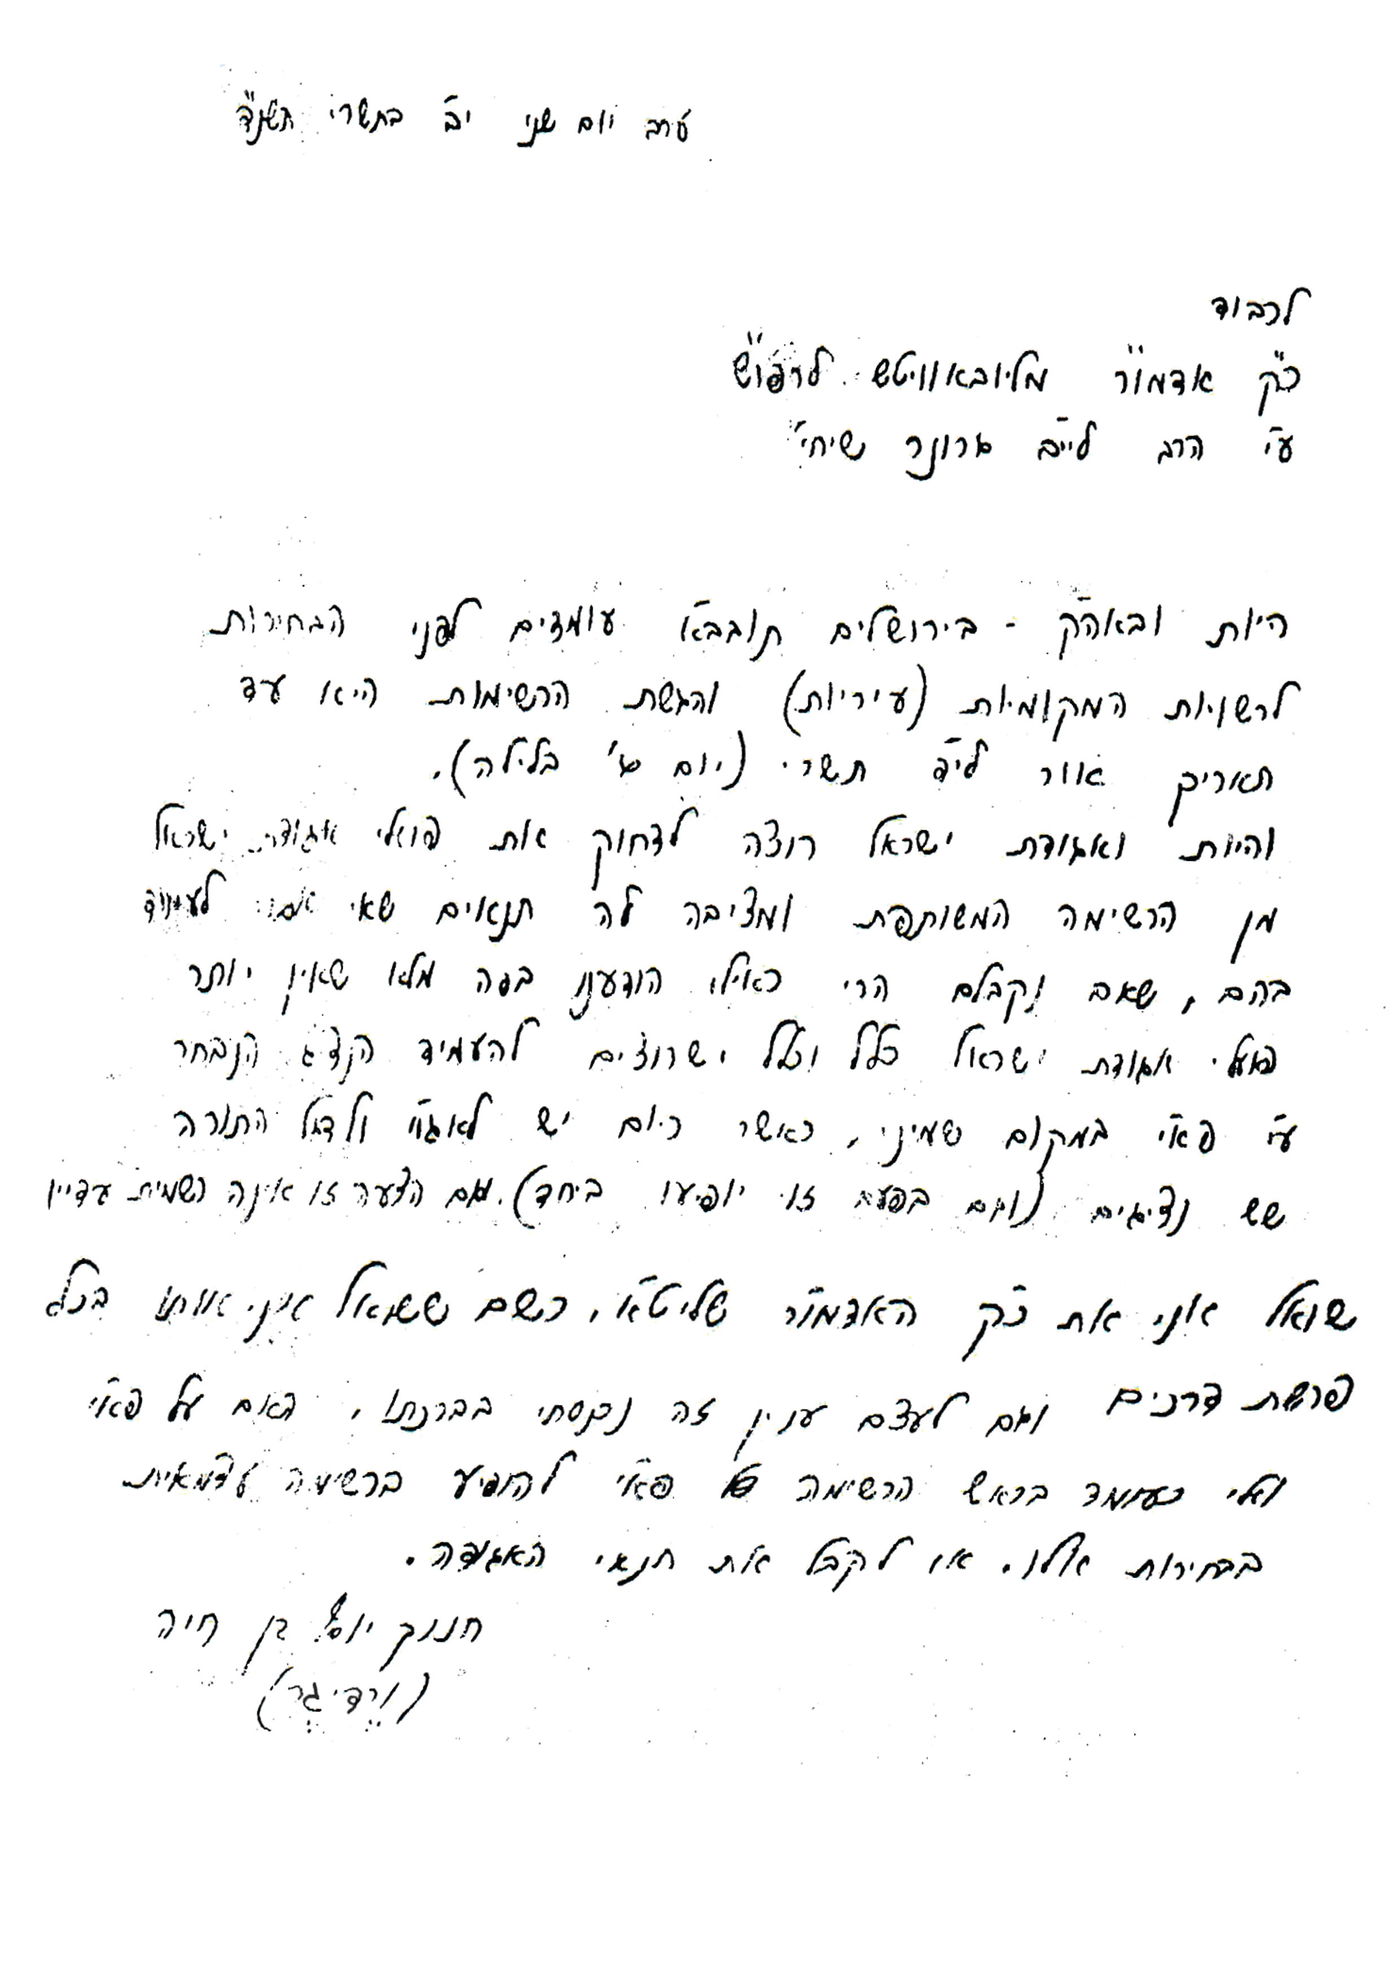 ערב יום שני י״ב בתשרי תשנ״ד
לכבוד
כ״ק אדמו״ר מליובאוויטש לרפו״ש
ע״י הרב לייב גרונר שיחי׳
היות ובאה״ק - בירושלים תובב״א עומדים לפני הבחירות
לרשויות המקומיות (עיריות) והגשת הרשימות היא עד
תאריך אור לי״ד תשרי (יום ג׳ בלילה).
והיות ואגודת ישראל רוצה לדחוק את פועלי אגודת ישראל
מן הרשימה המשותפת ומציבה לה תנאים שאי אפשר לעמוד
בהם, שאם נקבלם הרי כאילו הודענו בפה מלא שאין יותר
פועלי אגודת ישראל כלל וכלל ישרוצים להעמיד הנציג הנבחר
ע״י פא״י במקום שמיני, כאשר כיום יש לאגו״י ולדגל התורה
שש נציגים (וגם בפעם זו יופיעו ביחד). וגם הצעה זו אינה רשמית עדיין
שואל אני את כ״ק האדמו״ר שליט״א, כשם ששואל אני אותו בכל
פרשת דרכים וגם לעצם ענין זה נכנסתי בברכתו, האם על פא״י
ואלי כעומד בראש הרשימה פא״י להופיע ברשימה עצמאית
בבחירות אלו. או לקבל את תנאי האגודה.
חנוך יוסף בן חיה
(ורדיגר)